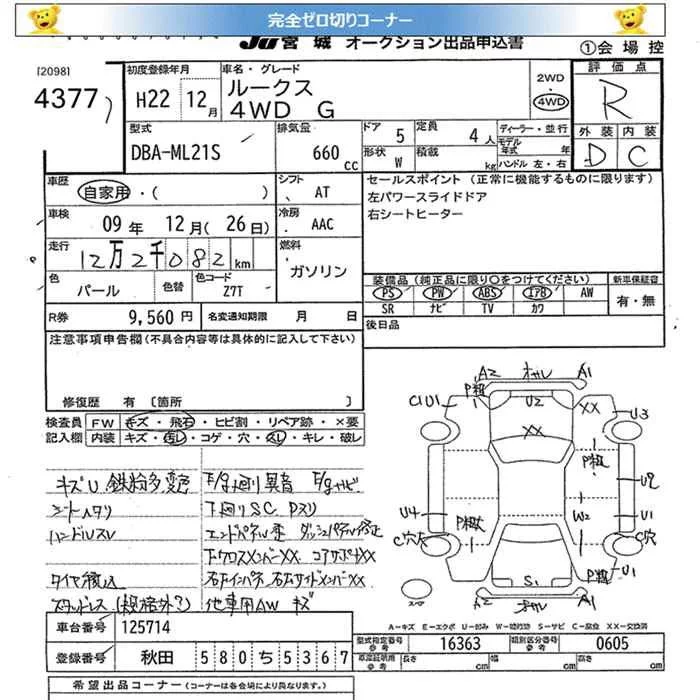 完全ゼロ切りコーナー
JU宮城 オークション出品申込書
①会場控
[2098]
4377
初度登録年月
H22 12月
車名・グレード
ルークス
4WD G
2WD
・
4WD
評価点
R
外装 内装
D C
型式
DBA-ML21S
排気量
660 cc
ドア 5
定員 4人
形状 W
積載 kg
ディーラー・並行
モデル年式 年
ハンドル 左・右
車歴
自家用・( )
シフト
AT
セールスポイント (正常に機能するものに限ります)
左パワースライドドア
右シートヒーター
車検
09年 12月(26日)
冷房
AAC
走行
12万2千082km
燃料
ガソリン
色
パール
色替
色コード
Z7T
装備品(純正品に限り○をつけてください)
新車保証書
PS PW ABS エアB AW
SR ナビ TV カワ
有・無
R券
9,560円
名変通知期限 月 日
後日品
注意事項申告欄(不具合内容等は具体的に記入して下さい)
修復歴 有 〔箇所 〕
検査員記入欄
FW キズ・飛石・ヒビ割・リペア跡・×要
内装 キズ・汚レ・コゲ・穴・スレ・キレ・破レ
キズU 鉄粉多 変色
シートヘタリ
ハンドルスレ
タイヤ積込
F/g廻り異音 F/gナビ
下廻りSC Pスリ
エンドパネル歪
下クロスメンバーXX コアサポートXX
他車用AW キズ
A2 A1
P粗
C1U1 U2 XX U3
XX
P粗
U2
U4 U1
W2
C穴 C穴
P粗 U1
S1
A2 A1
スペア
A-キズ E-エクボ U-凹み W-補修跡 S-サビ C-腐食 XX-交換済
車台番号 125714
型式指定番号 参考 16363
類別区分番号 参考 0605
登録番号 秋田 580 ち 5367
車庫証明用 参考 長さ cm 幅 cm 高さ cm
希望出品コーナー (コーナーは各会場により異なります。)